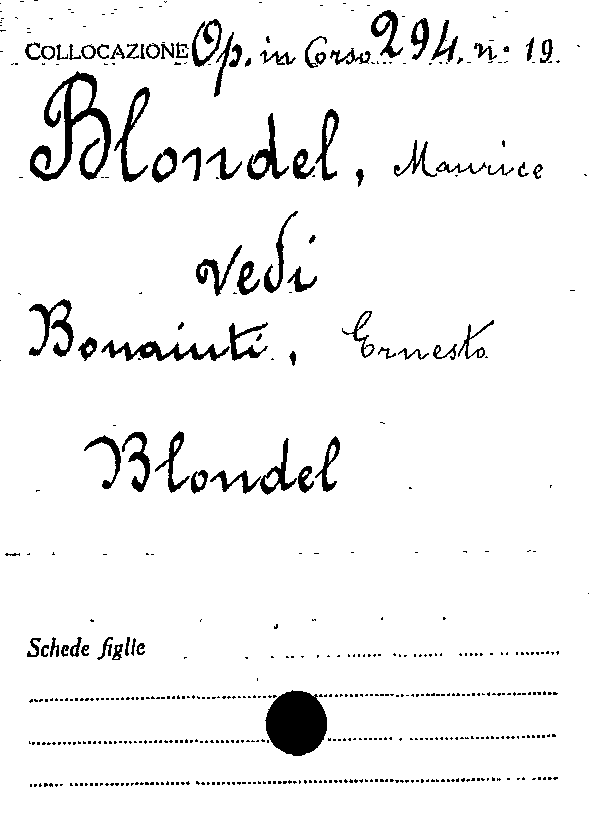 COLLOCAZIONE Op. in Corso 294. n. 19
Blondel, Maurice
vedi
Bonaiuti, Ernesto
Blondel
Schede figlie